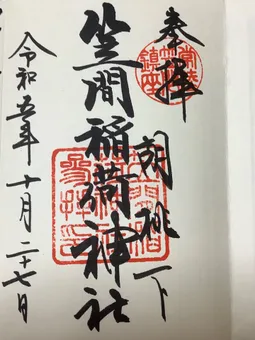 奉拝
胡桃下
笠間稲荷神社
令和五年十月二十七日